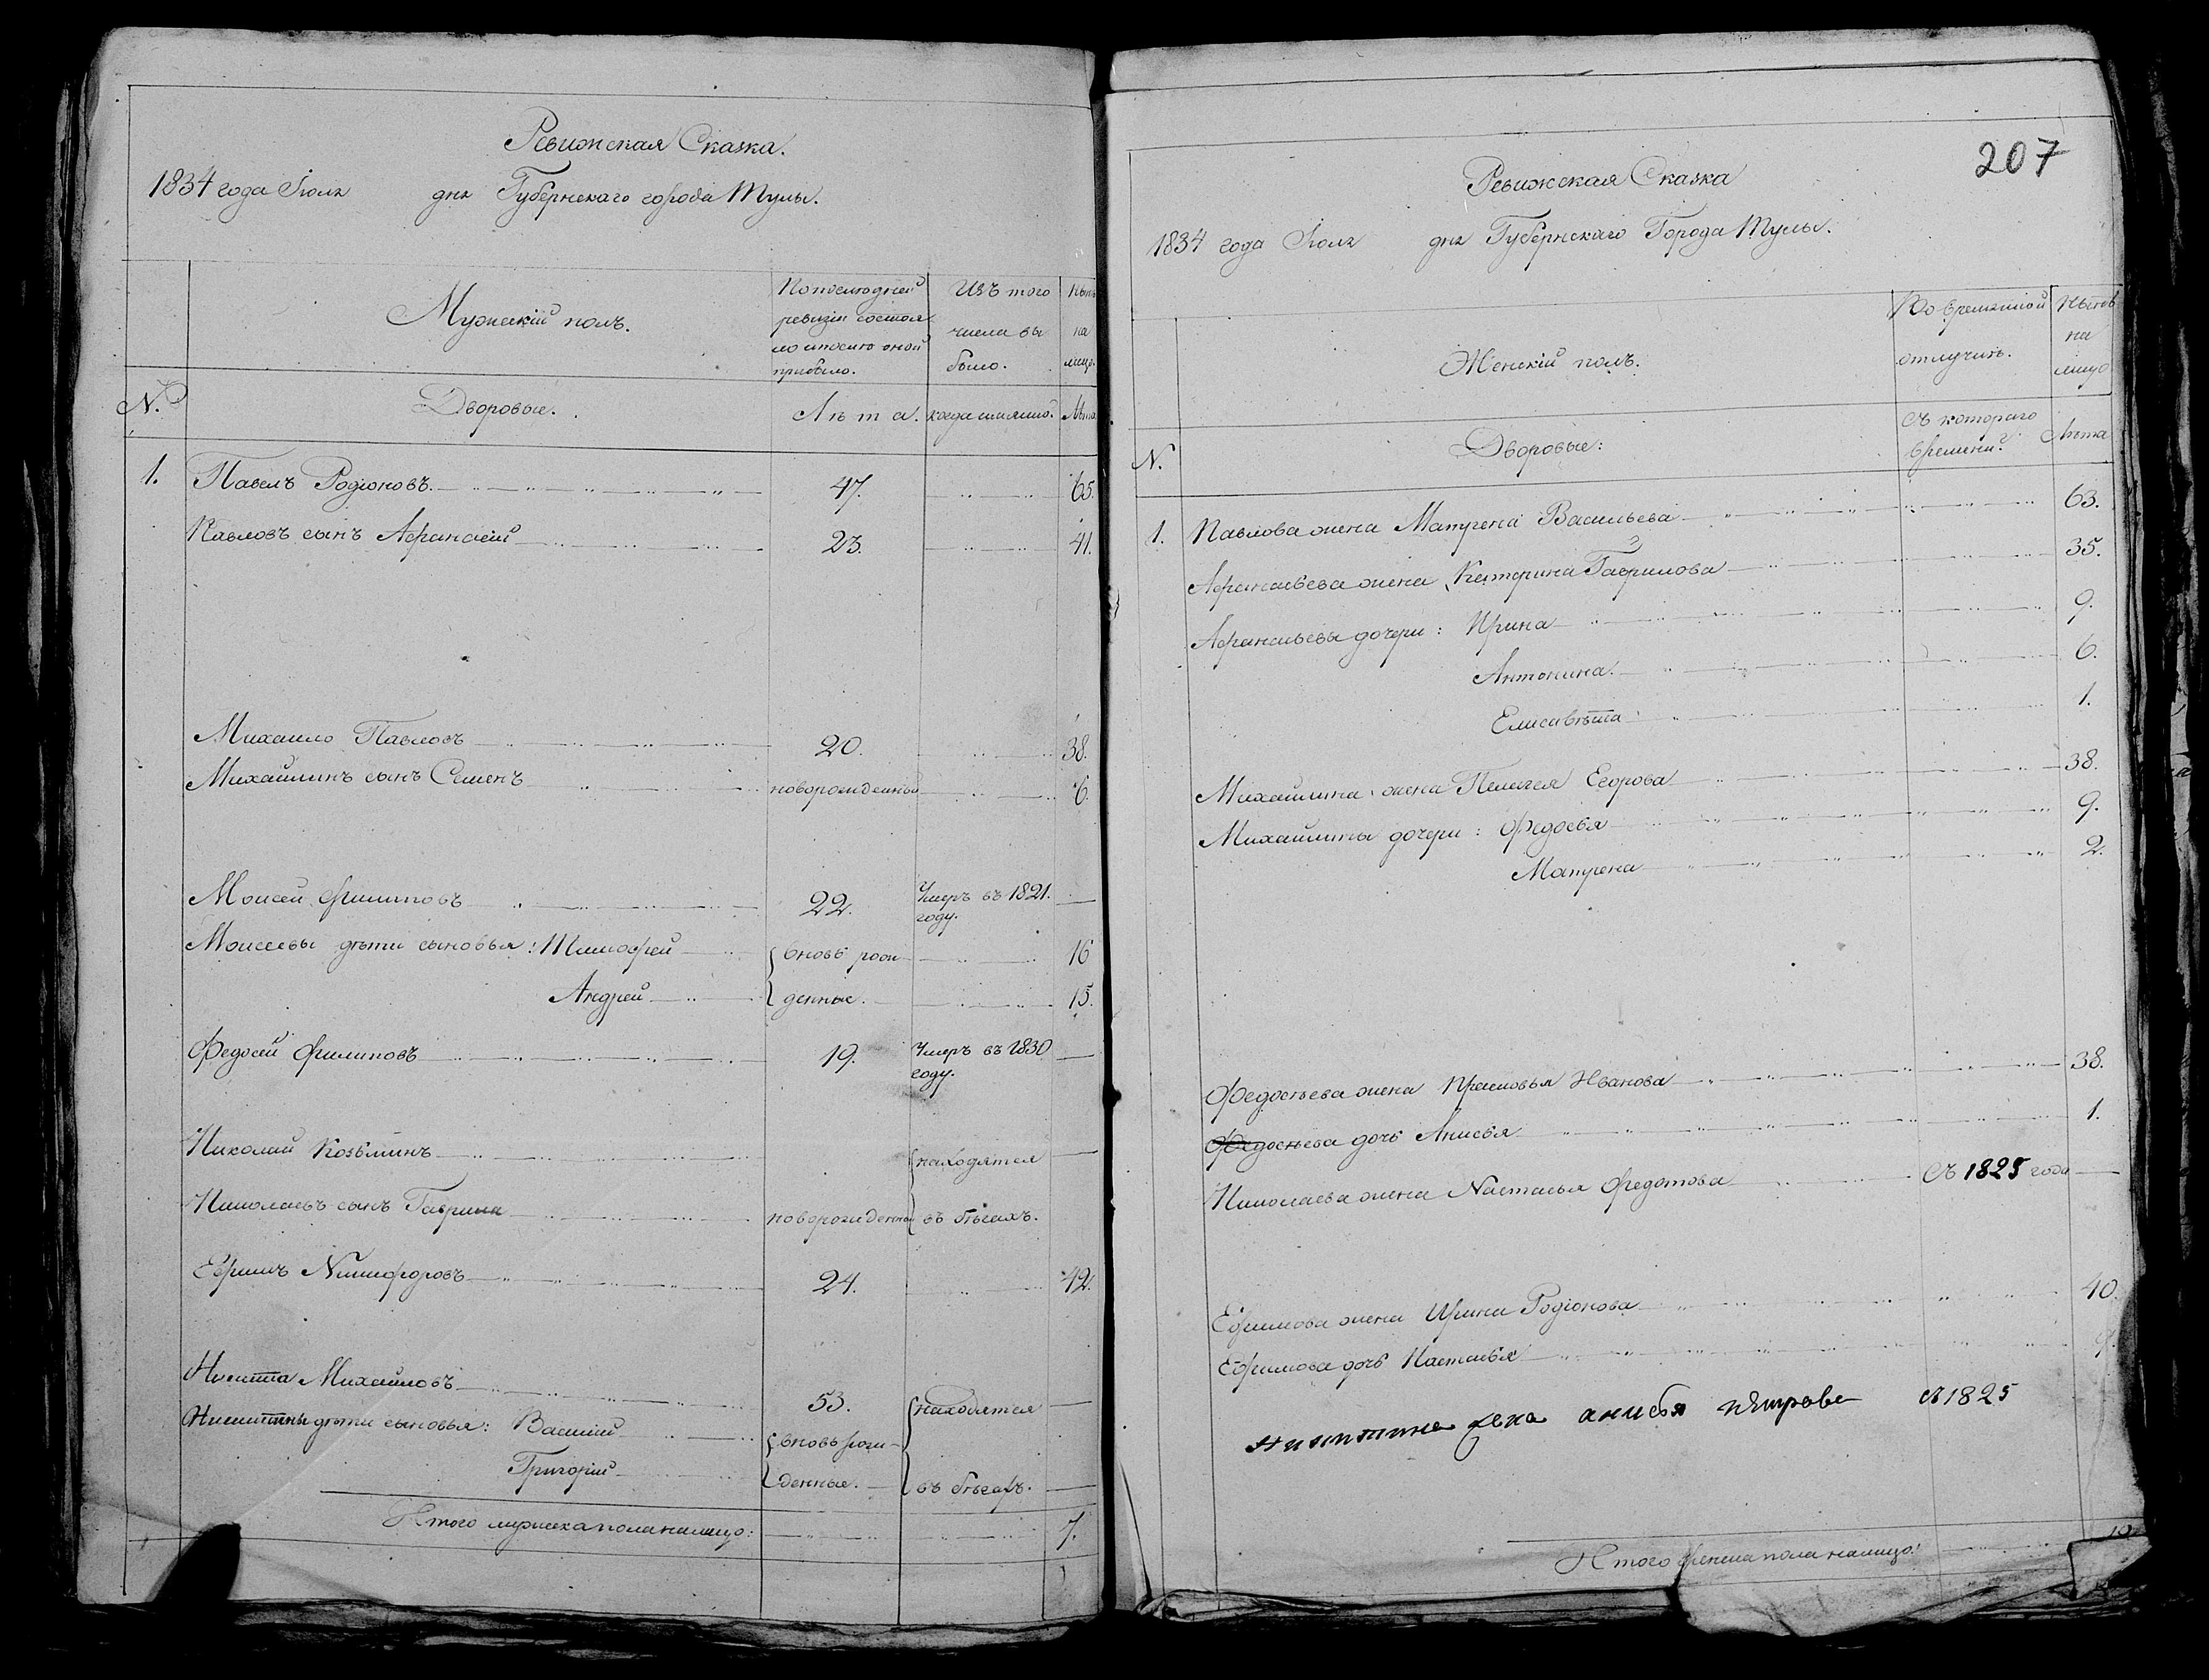 Ревижская Сказка.
1834 года Іюля дня Губернскаго города Тулы.
Мужескій полъ.
По последней ревизіи состоя ло и после оной прибыло.
Изъ того числа вы было.
Ныне на лицо.
N.
Дворовые.
Лѣта.
когда имянно.
Лѣта
1. Павелъ Родіоновъ. 47. 65.
Павловъ сынъ Афанасій 23. 41.
Михайло Павловъ 20. 38.
Михайлинъ сынъ Семенъ новорожденный 6.
Моисей Филиповъ 22. Умеръ въ 1821. году.
Моисеевы дѣти сыновья: Тимофей вновь рож 16
Андрей денные. 15.
Федосей Филиповъ 19. Умеръ въ 1830 году.
Николай Козьминъ находятся
Николаевъ сынъ Гаврила новорожденной въ бѣгахъ.
Ефимъ Никифоровъ 24. 42.
Никита Михайловъ 53. находятся
Никитины дѣти сыновья: Василій вновь рож-
Григорій денные. въ бѣгахъ.
Итого мужеска пола на лицо: 7.
207
Ревижская Сказка
1834 года Іюля дня Губернскаго Города Тулы.
Женскій полъ.
Во временной отлучкѣ.
Нынѣ на лицо
N.
Дворовые:
Съ котораго времени?
Лѣта
1. Павлова жена Матрена Васильева 63.
Афанасьева жена Катерина Гаврилова 35.
Афанасьевы дочери: Ирина 9.
Антонина. 6.
Елисавѣта 1.
Михайлина жена Пелагея Егорова 38.
Михайлины дочери: Федосья 9.
Матрена 2.
Федосѣева жена Прасковья Иванова 38.
Федосѣева дочь Анисья 1.
Николаева жена Настасья Федотова Съ 1825 года
Ефимова жена Ирина Родіонова 40.
Ефимова дочь Настасья
Никитина жена анисья петрова съ 1825
Итого женска пола на лицо: 10